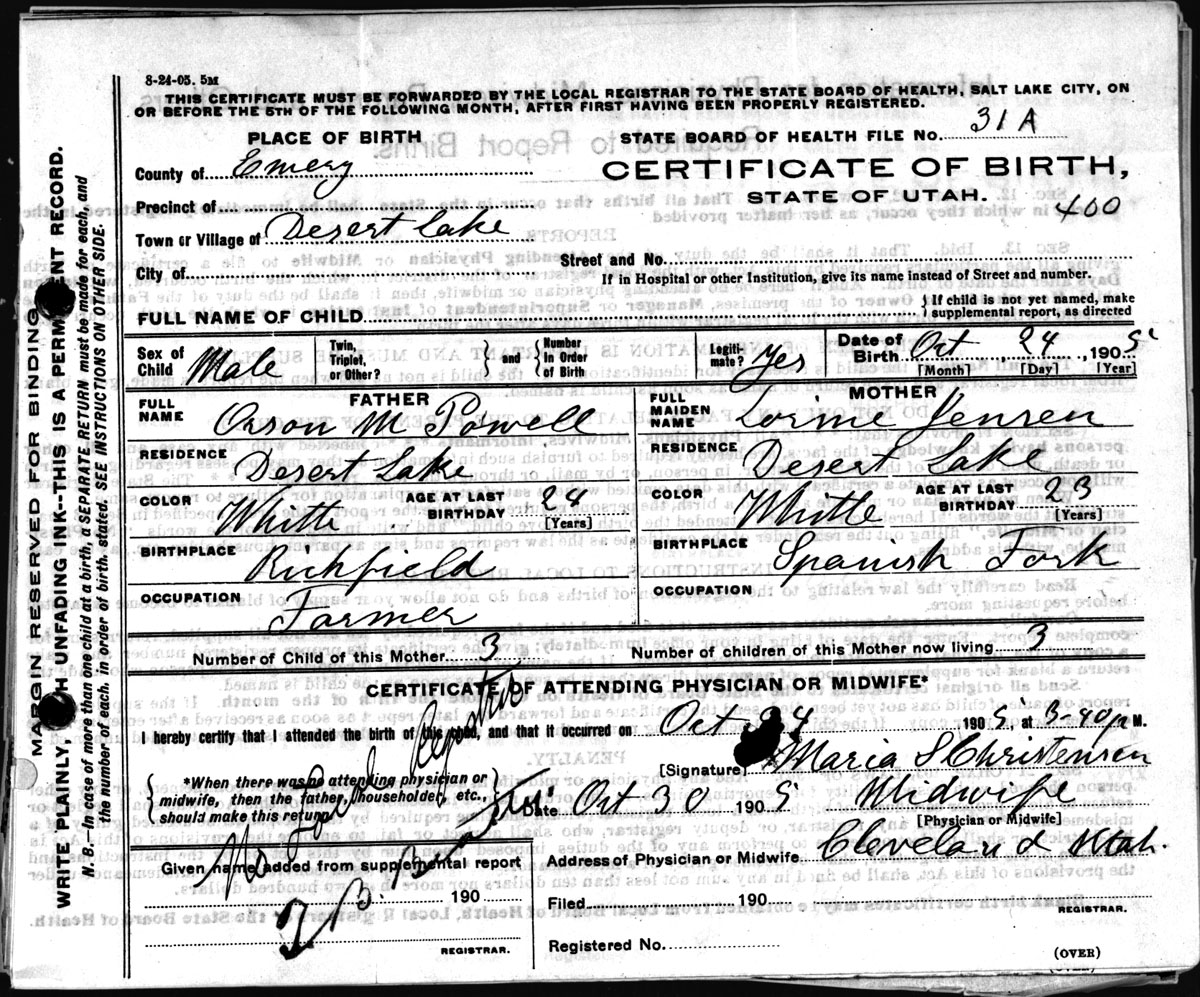 8-24-05. 5M
THIS CERTIFICATE MUST BE FORWARDED BY THE LOCAL REGISTRAR TO THE STATE BOARD OF HEALTH, SALT LAKE CITY, ON
OR BEFORE THE 5TH OF THE FOLLOWING MONTH, AFTER FIRST HAVING BEEN PROPERLY REGISTERED.
PLACE OF BIRTH
STATE BOARD OF HEALTH FILE NO. 31A
County of Emery
CERTIFICATE OF BIRTH,
STATE OF UTAH.
400
Precinct of
Town or Village of Desert Lake
Street and No.
City of
If in Hospital or other Institution, give its name instead of Street and number.
FULL NAME OF CHILD
} If child is not yet named, make
supplemental report, as directed
Sex of Child Male
Twin, Triplet, or Other? } and { Number in Order of Birth
Legiti-mate? Yes
Date of Birth Oct 24, 1905
[Month] [Day] [Year]
FATHER
FULL NAME Orson M Powell
RESIDENCE Desert Lake
COLOR White
AGE AT LAST BIRTHDAY 24
[Years]
BIRTHPLACE Richfield
OCCUPATION Farmer
MOTHER
FULL MAIDEN NAME Lorine Jensen
RESIDENCE Desert Lake
COLOR White
AGE AT LAST BIRTHDAY 23
[Years]
BIRTHPLACE Spanish Fork
OCCUPATION
Number of Child of this Mother 3
Number of children of this Mother now living 3
CERTIFICATE OF ATTENDING PHYSICIAN OR MIDWIFE*
I hereby certify that I attended the birth of this child, and that it occurred on Oct 24 1905, at 3-40 P M.
{ *When there was no attending physician or
midwife, then the father, householder, etc.,
should make this return. }
[Signature] Maria S Christensen
Date Oct 30 1905 Midwife
[Physician or Midwife]
Address of Physician or Midwife Cleveland Utah.
Given name added from supplemental report
190
REGISTRAR.
No Local Registrar
Filed 190
REGISTRAR.
Registered No.
(OVER)
MARGIN RESERVED FOR BINDING
WRITE PLAINLY, WITH UNFADING INK--THIS IS A PERMANENT RECORD.
N. B.--In case of more than one child at a birth, a SEPARATE RETURN must be made for each, and
the number of each, in order of birth, stated. SEE INSTRUCTIONS ON OTHER SIDE.